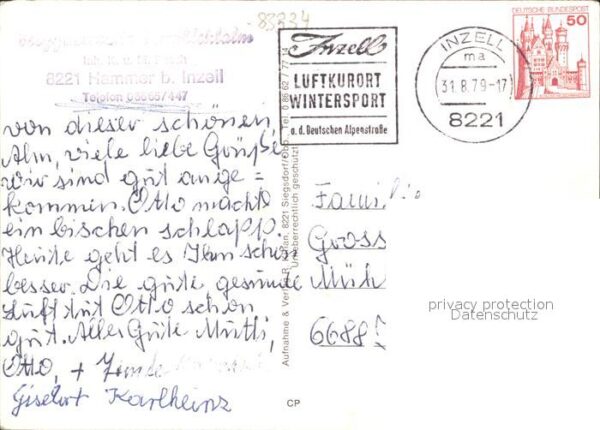 83334
8221 Hammer b. Inzell
Telefon 08665/447
Inzell
LUFTKURORT
WINTERSPORT
a. d. Deutschen Alpenstraße
INZELL
ma
31.8.79-17
8221
DEUTSCHE BUNDESPOST
50
von dieser schönen
Alm, viele liebe Grüße
wir sind gut ange=
kommen. Otto macht
ein bischen schlapp.
Heute geht es Ihm schon
besser. Die gute gesunde
Luft tut Otto schon
gut. Alles Gute Mutti,
Otto, +
Giselert Karlheinz
Aufnahme & Verlag R. 8221 Siegsdorf/Obb. Tel. 0 86 62 / 77 14
Urheberrechtlich geschützt
CP
Familie
Gross
6688
privacy protection
Datenschutz